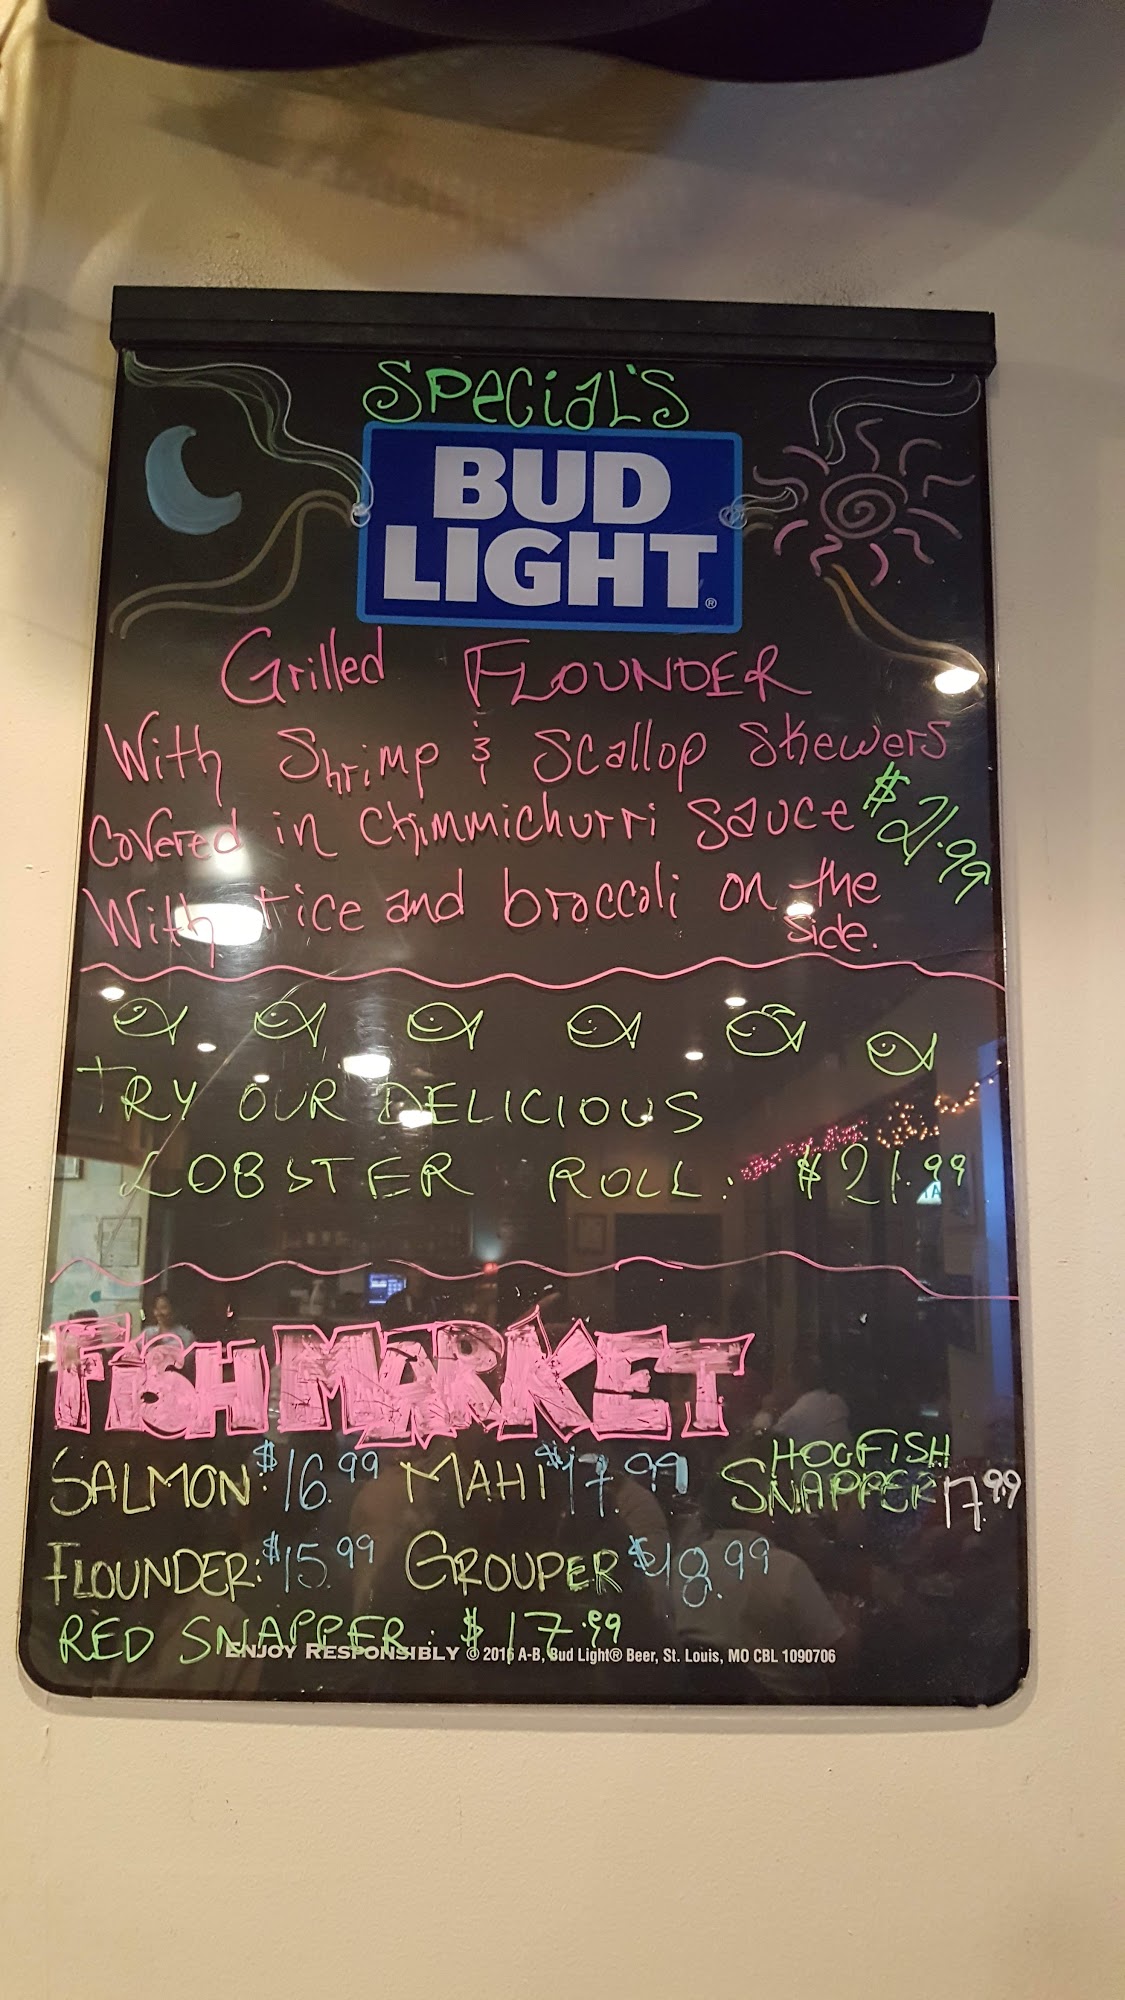 SPECiAL'S
BUD
LIGHT®
Grilled FLOUNDER
With Shrimp & Scallop Skewers
Covered in Chimmichurri Sauce $21.99
With rice and broccoli on the
side.
TRY OUR DELICIOUS
LOBSTER ROLL: $21.99
FiSH MARKET
HOGFISH
SALMON: $16.99 MAHI $17.99 SNAPPER 17.99
FLOUNDER: $15.99 GROUPER $18.99
RED SNAPPER: $17.99
ENJOY RESPONSIBLY © 2016 A-B, Bud Light® Beer, St. Louis, MO CBL 1090706